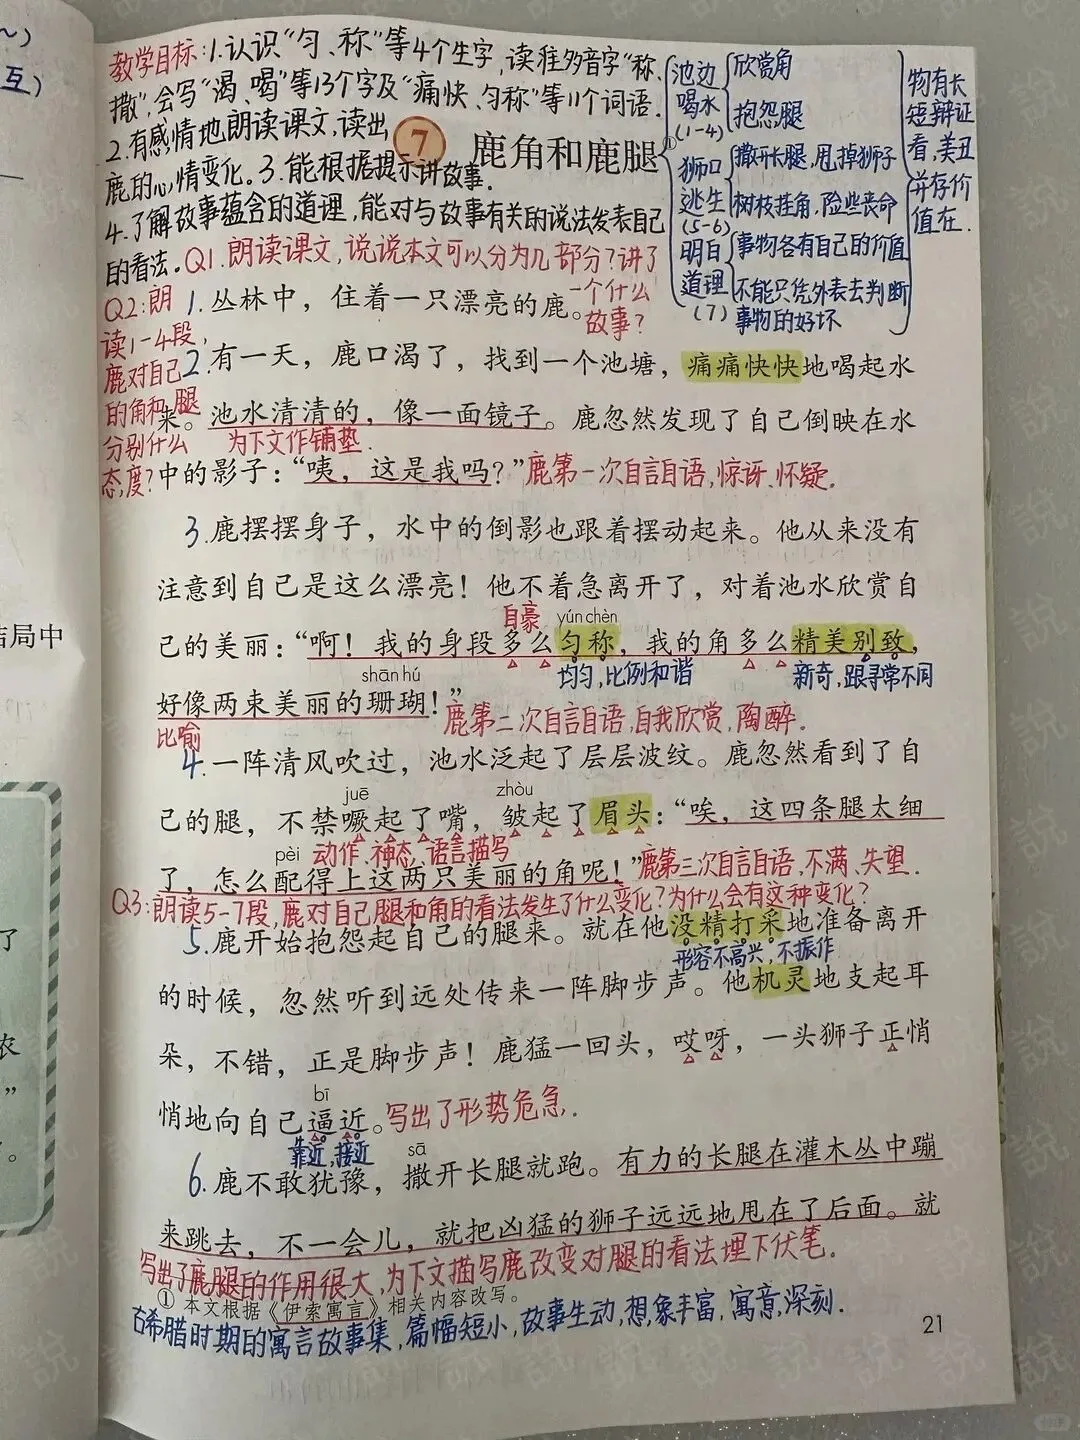 ~)
互)
教学目标:1.认识“匀、称”等4个生字,读准多音字“称、
撒”,会写“渴、喝”等13个字及“痛快、匀称”等11个词语.
2.有感情地朗读课文,读出
鹿的心情变化.3.能根据提示讲故事.
4.了解故事蕴含的道理,能对与故事有关的说法发表自己
的看法.
7 鹿角和鹿腿①
池边
喝水
(1-4)
欣赏角
抱怨腿
狮口
逃生
(5-6)
撒开长腿,甩掉狮子
树枝挂角,险些丧命
明白
道理
(7)
事物各有自己的价值
不能只凭外表去判断
事物的好坏
物有长
短辩证
看,美丑
并存价
值在.
Q1.朗读课文,说说本文可以分为几部分?讲了
一个什么
故事?
Q2:朗
读1-4段,
鹿对自己
的角和腿
分别什么
态度?
1.丛林中,住着一只漂亮的鹿。
2.有一天,鹿口渴了,找到一个池塘,痛痛快快地喝起水
来。池水清清的,像一面镜子。鹿忽然发现了自己倒映在水
为下文作铺垫.
中的影子:“咦,这是我吗?”鹿第一次自言自语,惊讶、怀疑.
3.鹿摆摆身子,水中的倒影也跟着摆动起来。他从来没有
注意到自己是这么漂亮!他不着急离开了,对着池水欣赏自
自豪 yún chèn
己的美丽:“啊!我的身段多么匀称,我的角多么精美别致,
均匀,比例和谐 新奇,跟寻常不同
shān hú
好像两束美丽的珊瑚!”鹿第二次自言自语,自我欣赏,陶醉.
比喻
4.一阵清风吹过,池水泛起了层层波纹。鹿忽然看到了自
juē zhòu
己的腿,不禁噘起了嘴,皱起了眉头:“唉,这四条腿太细
pèi 动作、神态、语言描写
了,怎么配得上这两只美丽的角呢!”鹿第三次自言自语,不满、失望.
Q3:朗读5-7段,鹿对自己腿和角的看法发生了什么变化?为什么会有这种变化?
5.鹿开始抱怨起自己的腿来。就在他没精打采地准备离开
形容不高兴,不振作
的时候,忽然听到远处传来一阵脚步声。他机灵地支起耳
朵,不错,正是脚步声!鹿猛一回头,哎呀,一头狮子正悄
bī
悄地向自己逼近。写出了形势危急.
靠近,接近 sā
6.鹿不敢犹豫,撒开长腿就跑。有力的长腿在灌木丛中蹦
来跳去,不一会儿,就把凶猛的狮子远远地甩在了后面。就
写出了鹿腿的作用很大,为下文描写鹿改变对腿的看法埋下伏笔.
① 本文根据《伊索寓言》相关内容改写。
古希腊时期的寓言故事集,篇幅短小,故事生动,想象丰富,寓意深刻.
21
结局中
了
农
”
。